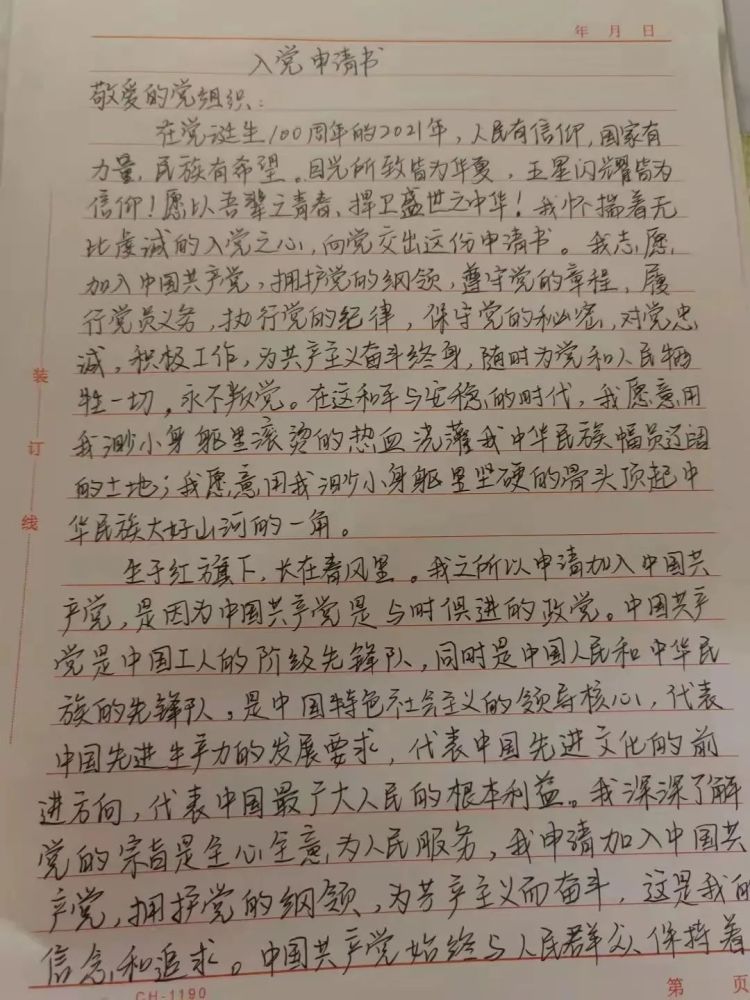 年 月 日
入党申请书
敬爱的党组织:
在党诞生100周年的2021年,人民有信仰,国家有
力量,民族有希望。目光所致皆为华夏,五星闪耀皆为
信仰!愿以吾辈之青春、捍卫盛世之中华!我怀揣着无
比虔诚的入党之心,向党交出这份申请书。我志愿
加入中国共产党,拥护党的纲领,遵守党的章程,履
行党员义务,执行党的纪律,保守党的秘密,对党忠
诚,积极工作,为共产主义奋斗终身,随时为党和人民牺
牲一切,永不叛党。在这和平与安稳的时代,我愿意用
我渺小身躯里滚烫的热血浇灌我中华民族幅员辽阔
的土地;我愿意用我渺小身躯里坚硬的骨头顶起中
华民族大好山河的一角。
生于红旗下,长在春风里。我之所以申请加入中国共
产党,是因为中国共产党是与时俱进的政党。中国共产
党是中国工人的阶级先锋队,同时是中国人民和中华民
族的先锋队,是中国特色社会主义的领导核心,代表
中国先进生产力的发展要求,代表中国先进文化的前
进方向,代表中国最广大人民的根本利益。我深深了解
党的宗旨是全心全意为人民服务,我申请加入中国共
产党,拥护党的纲领,为共产主义而奋斗,这是我的
信念和追求。中国共产党始终与人民群众保持着
装
订
线
CH-1190
第 页